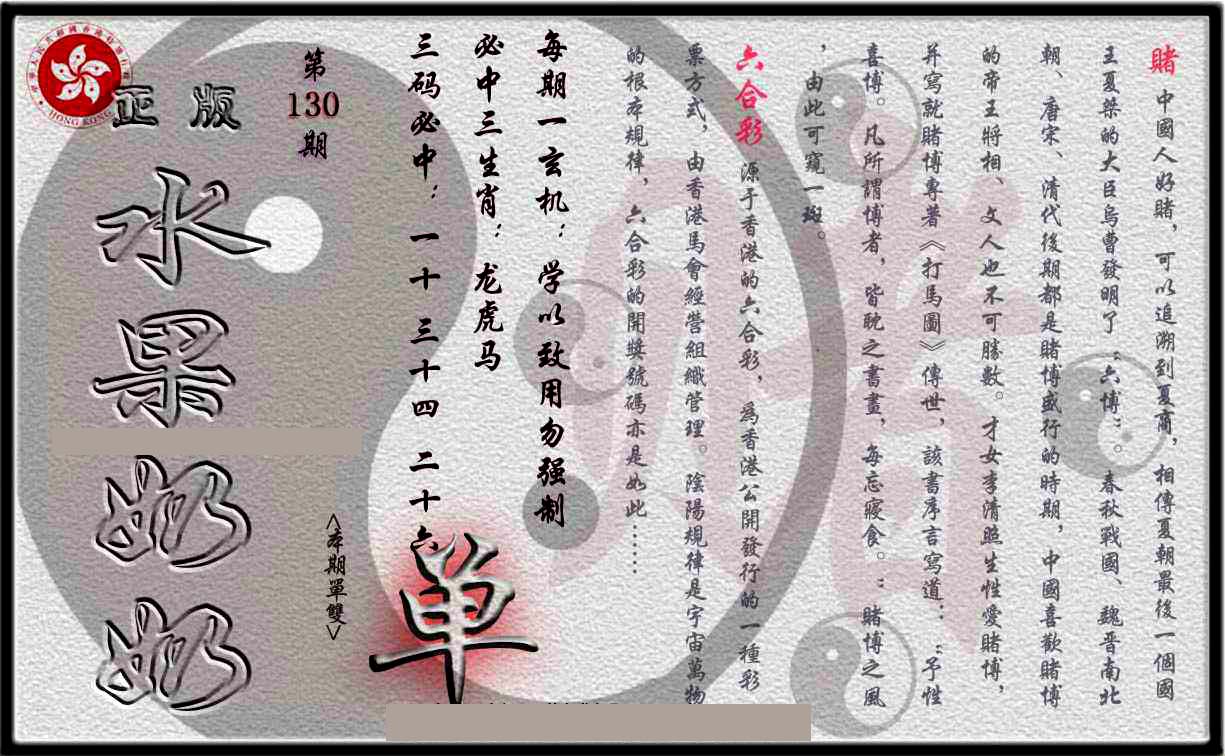 賭 中國人好賭，可以追溯到夏商，相傳夏朝最後一個國
王夏桀的大臣烏曹發明了“六博”。春秋戰國、魏晉南北
朝、唐宋、清代後期都是賭博盛行的時期，中國喜歡賭博
的帝王將相、文人也不可勝數。才女李清照生性愛賭博，
并寫就賭博專著《打馬圖》傳世，該書序言寫道：“予性
喜博。凡所謂博者，皆耽之書畫，每忘寢食。”賭博之風
，由此可窺一斑。
六合彩 源于香港的六合彩，為香港公開發行的一種彩
票方式，由香港馬會經營組織管理。陰陽規律是宇宙萬物
的根本規律，六合彩的開獎號碼亦是如此……
每期一玄机：学以致用勿强制
必中三生肖：龙虎马
三码必中：一十 三十四 二十六
单
<本期單雙>
第
130
期
正版
水果奶奶
HONG KONG